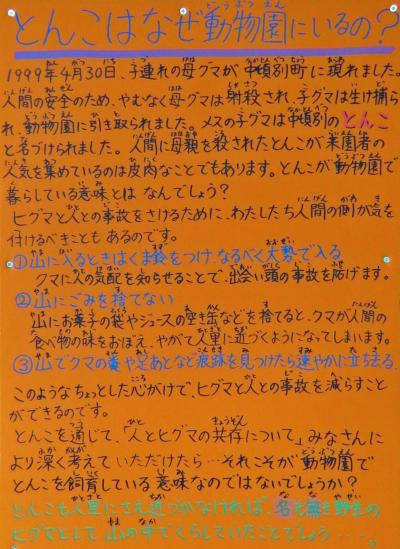 とんこはなぜ動物園にいるの?
1999年4月30日、子連れの母グマが中頓別町に現れました。
人間の安全のため、やむなく母グマは射殺され、子グマは生け捕ら
れ、動物園に引き取られました。メスの子グマは中頓別のとんこ
と名づけられました。人間に母親を殺されたとんこが来園者の
人気を集めているのは皮肉なことでもあります。とんこが動物園で
暮らしている意味とは なんでしょう?
ヒグマと人との事故をさけるために、わたしたち人間の側が気を
付けるべきことも あるのです。
①山に入るときはくま鈴をつけ、なるべく大勢で入る
クマに人の気配を知らせることで、出会い頭の事故を防げます。
②山にごみを捨てない
山にお菓子の袋やジュースの空き缶などを捨てると、クマが人間の
食べ物の味をおぼえ、やがて人里に近づくようになってしまいます。
③山でクマの糞や足あとなど痕跡を見つけたら速やかに立ち去る。
このようなちょっとした心がけで、ヒグマと人との事故を減らすこと
ができるのです。
とんこを通じて、「人とヒグマの共存について」みなさんに
より深く考えて いただけたら…それこそが動物園で
とんこを飼育している意味なのではないでしょうか?
とんこも人里にさえ近づかなければ、名も無き野生の
ヒグマとして 山の中でくらしていたことでしょう‥‥